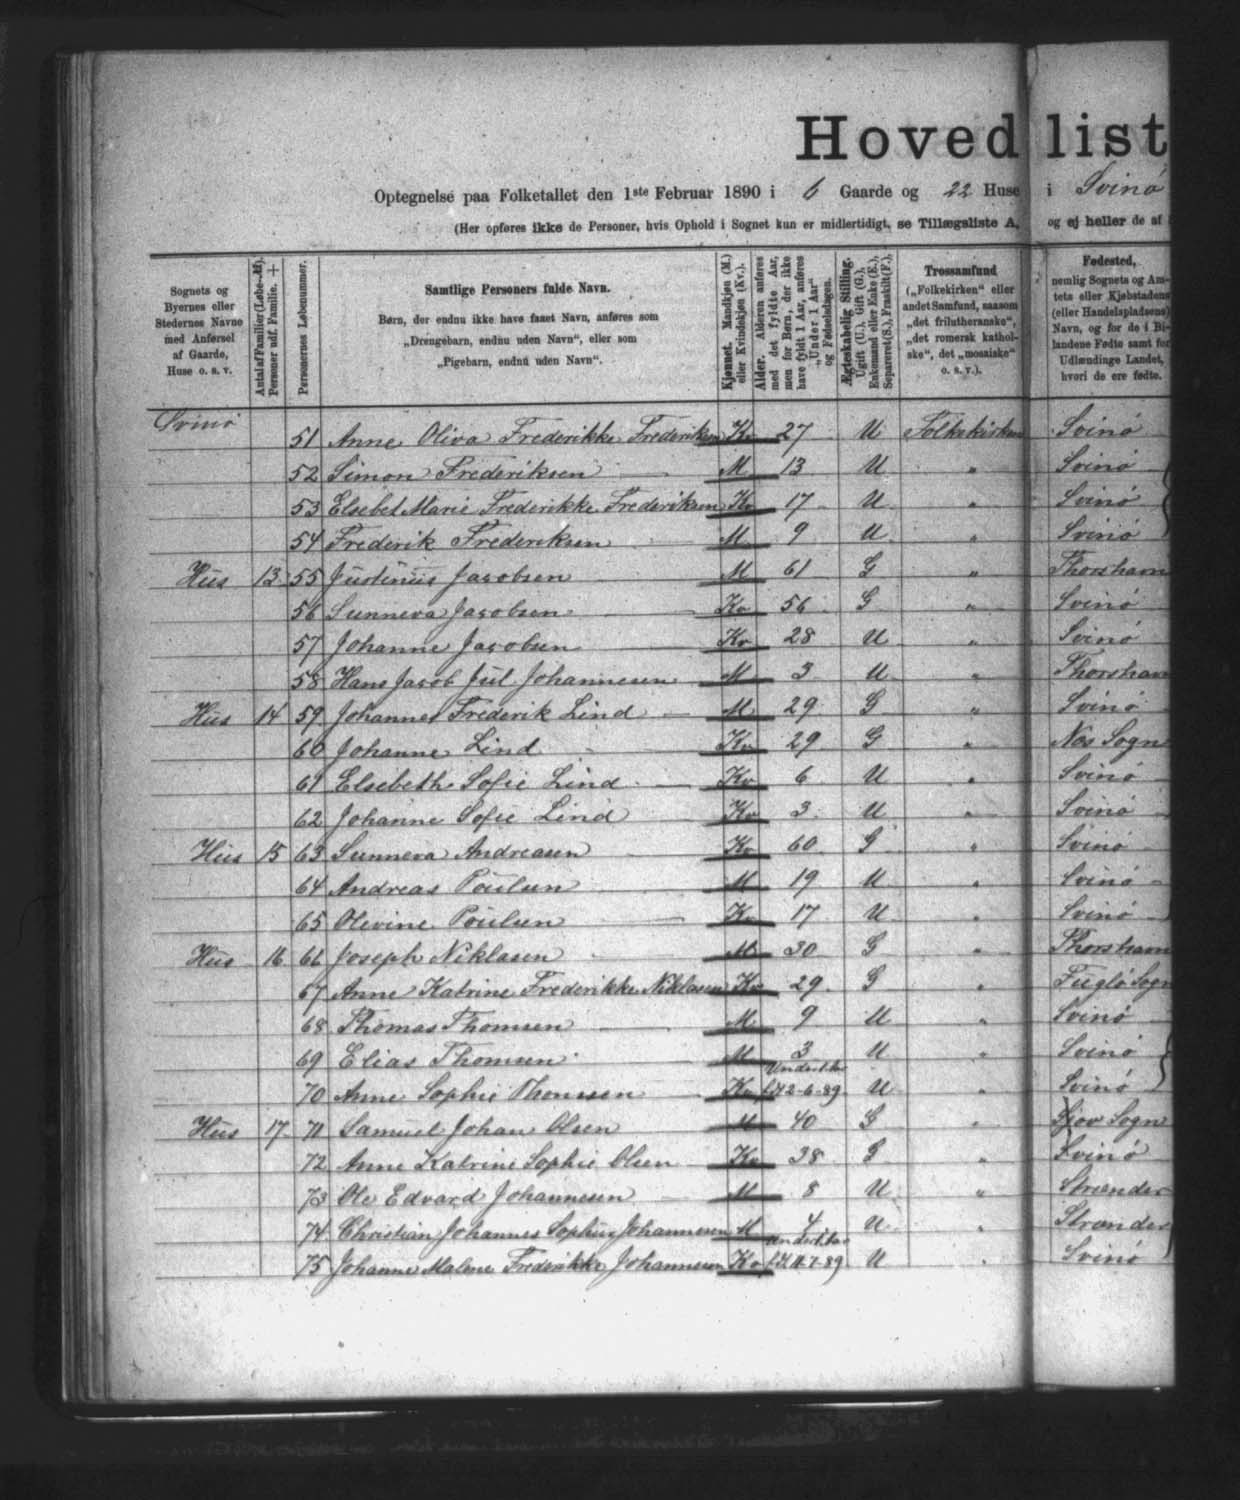 Hovedlist
Optegnelse paa Folketallet den 1ste Februar 1890 i 6 Gaarde og 22 Huse i Svinö
(Her opføres ikke de Personer, hvis Ophold i Sognet kun er midlertidigt, se Tillægsliste A, og ej heller de af
Sognets og Byernes eller Stedernes Navne med Anførsel af Gaarde, Huse o. s. v.
Antal af Familier (Løbe-№). Personer udf. Familie. +
Personernes Løbenummer.
Samtlige Personers fulde Navn.
Børn, der endnu ikke have faaet Navn, anføres som
„Drengebarn, endnu uden Navn“, eller som
„Pigebarn, endnu uden Navn“.
Kjønnet. Mandkjøn (M.) eller Kvindekjøn (Kv.).
Alder. Alderen anføres med det fyldte Aar, men for Børn, der ikke have fyldt 1 Aar, anføres „Under 1 Aar“ og Fødselsdagen.
Ægteskabelig Stilling. Ugift (U.), Gift (G.), Enkemand eller Enke (E.), Separeret (S.), Fraskilt (F.).
Trossamfund
(„Folkekirken“ eller andet Samfund, saasom „det frilutheranske“, „det romersk katholske“, det „mosaiske“ o. s. v.).
Fødested,
nemlig Sognets og Amtets eller Kjøbstadens (eller Handelspladsens) Navn, og for de i Bilandene Fødte samt for Udlændinge Landet, hvori de ere fødte.
Svinö 51 Anne Oliva Frederikke Frederiksen Kv 27 U Folkekirken Svinö
52 Simon Frederiksen M 13 U " Svinö
53 Elsebet Marie Frederikke Frederiksen Kv 17 U " Svinö
54 Frederik Frederiksen M 9 U " Svinö
Hus 13 55 Justinus Jacobsen M 61 G " Thorshavn
56 Sunneva Jacobsen Kv 56 G " Svinö
57 Johanne Jacobsen Kv 28 U " Svinö
58 Hans Jacob Juul Johannesen M 3 U " Thorshavn
Hus 14 59 Johannes Frederik Lind M 29 G " Svinö
60 Johanne Lind Kv 29 G " Nes Sogn
61 Elsebeth Sofie Lind Kv 6 U " Svinö
62 Johanne Sofie Lind Kv 3 U " Svinö
Hus 15 63 Sunneva Andreasen Kv 60 G " Svinö
64 Andreas Poulsen M 19 U " Svinö
65 Olevine Poulsen Kv 17 U " Svinö
Hus 16 66 Joseph Niklasen M 30 G " Thorshavn
67 Anne Katrine Frederikke Niklasen Kv 29 G " Fuglö Sogn
68 Thomas Thomsen M 9 U " Svinö
69 Elias Thomsen M 3 U " Svinö
70 Anne Sophie Thomsen Kv Under 1 Aar fdt 2-6-89 U " Svinö
Hus 17 71 Samuel Johan Olsen M 40 G " Sjov Sogn
72 Anne Katrine Sophie Olsen Kv 38 G " Svinö
73 Ole Edvard Johannesen M 8 U " Strænder
74 Christian Johannes Sophus Johannesen M 4 U " Strænder
75 Johanne Malene Frederikke Johannesen Kv Under 1 Aar fdt 11-7-89 U " Svinö